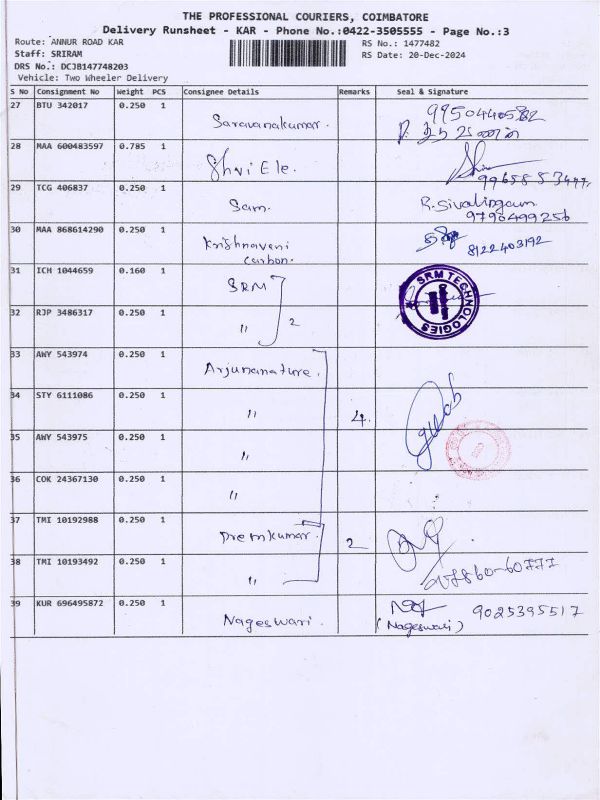 THE PROFESSIONAL COURIERS, COIMBATORE
Delivery Runsheet - KAR - Phone No.:0422-3505555 - Page No.:3
Route: ANNUR ROAD KAR
RS No.: 1477482
Staff: SRIRAM
RS Date: 20-Dec-2024
DRS No.: DCJB147748203
Vehicle: Two Wheeler Delivery
S No Consignment No Weight PCS Consignee Details Remarks Seal & Signature
27 BTU 342017 0.250 1 Saravanakumar.
28 MAA 600483597 0.785 1 Shri Ele.
29 TCG 406837 0.250 1 Sam. R. Sivalingam
9790499256
30 MAA 868614290 0.250 1 Krishnaveni 8122403192
carbon.
31 ICH 1044659 0.160 1 SRM SRM TECHNOLOGIES
32 RJP 3486317 0.250 1 " 2
33 AWY 543974 0.250 1 Arjunanature.
34 STY 6111086 0.250 1 " 4.
35 AWY 543975 0.250 1 "
36 COK 24367130 0.250 1 "
37 TMI 10192988 0.250 1 Premkumar. 2
38 TMI 10193492 0.250 1 "
39 KUR 696495872 0.250 1 Nageswari. 9025395517
(Nageswari)